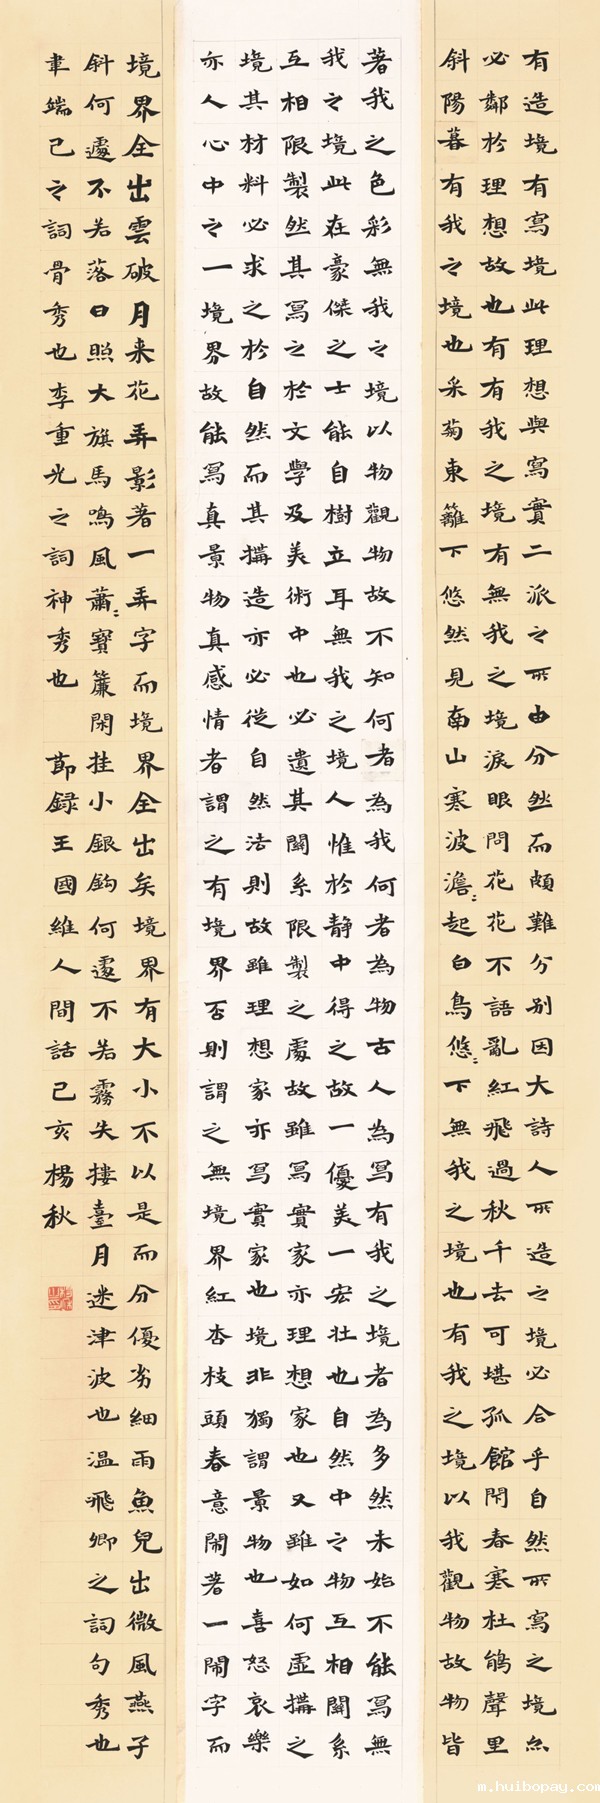 有造境有寫境此理想與寫實二派之所由分然而頗難分別因大詩人所造之境必合乎自然所寫之境亦
必鄰於理想故也有有我之境有無我之境淚眼問花花不語亂紅飛過秋千去可堪孤館閉春寒杜鵑聲里
斜陽暮有我之境也采菊東籬下悠然見南山寒波澹〻起白鳥悠〻下無我之境也有我之境以我觀物故物皆
著我之色彩無我之境以物觀物故不知何者為我何者為物古人為寫有我之境者為多然未始不能寫無
我之境此在豪傑之士能自樹立耳無我之境人惟於静中得之故一優美一宏壯也自然中之物互相關系
互相限製然其寫之於文學及美術中也必遺其關系限製之處故雖寫實家亦理想家也又雖如何虛構之
境其材料必求之於自然而其構造亦必從自然法則故雖理想家亦寫實家也境非獨謂景物也喜怒哀樂
亦人心中之一境界故能寫真景物真感情者謂之有境界否則謂之無境界紅杏枝頭春意鬧著一鬧字而
境界全出雲破月来花弄影著一弄字而境界全出矣境界有大小不以是而分優劣細雨魚兒出微風燕子
斜何遽不若落日照大旗馬鳴風蕭〻寶簾閑挂小銀鉤何遽不若霧失樓臺月迷津波也溫飛卿之詞句秀也
韋端己之詞骨秀也李重光之詞神秀也 節録王國維人間話己亥楊秋
m.huibopay.com